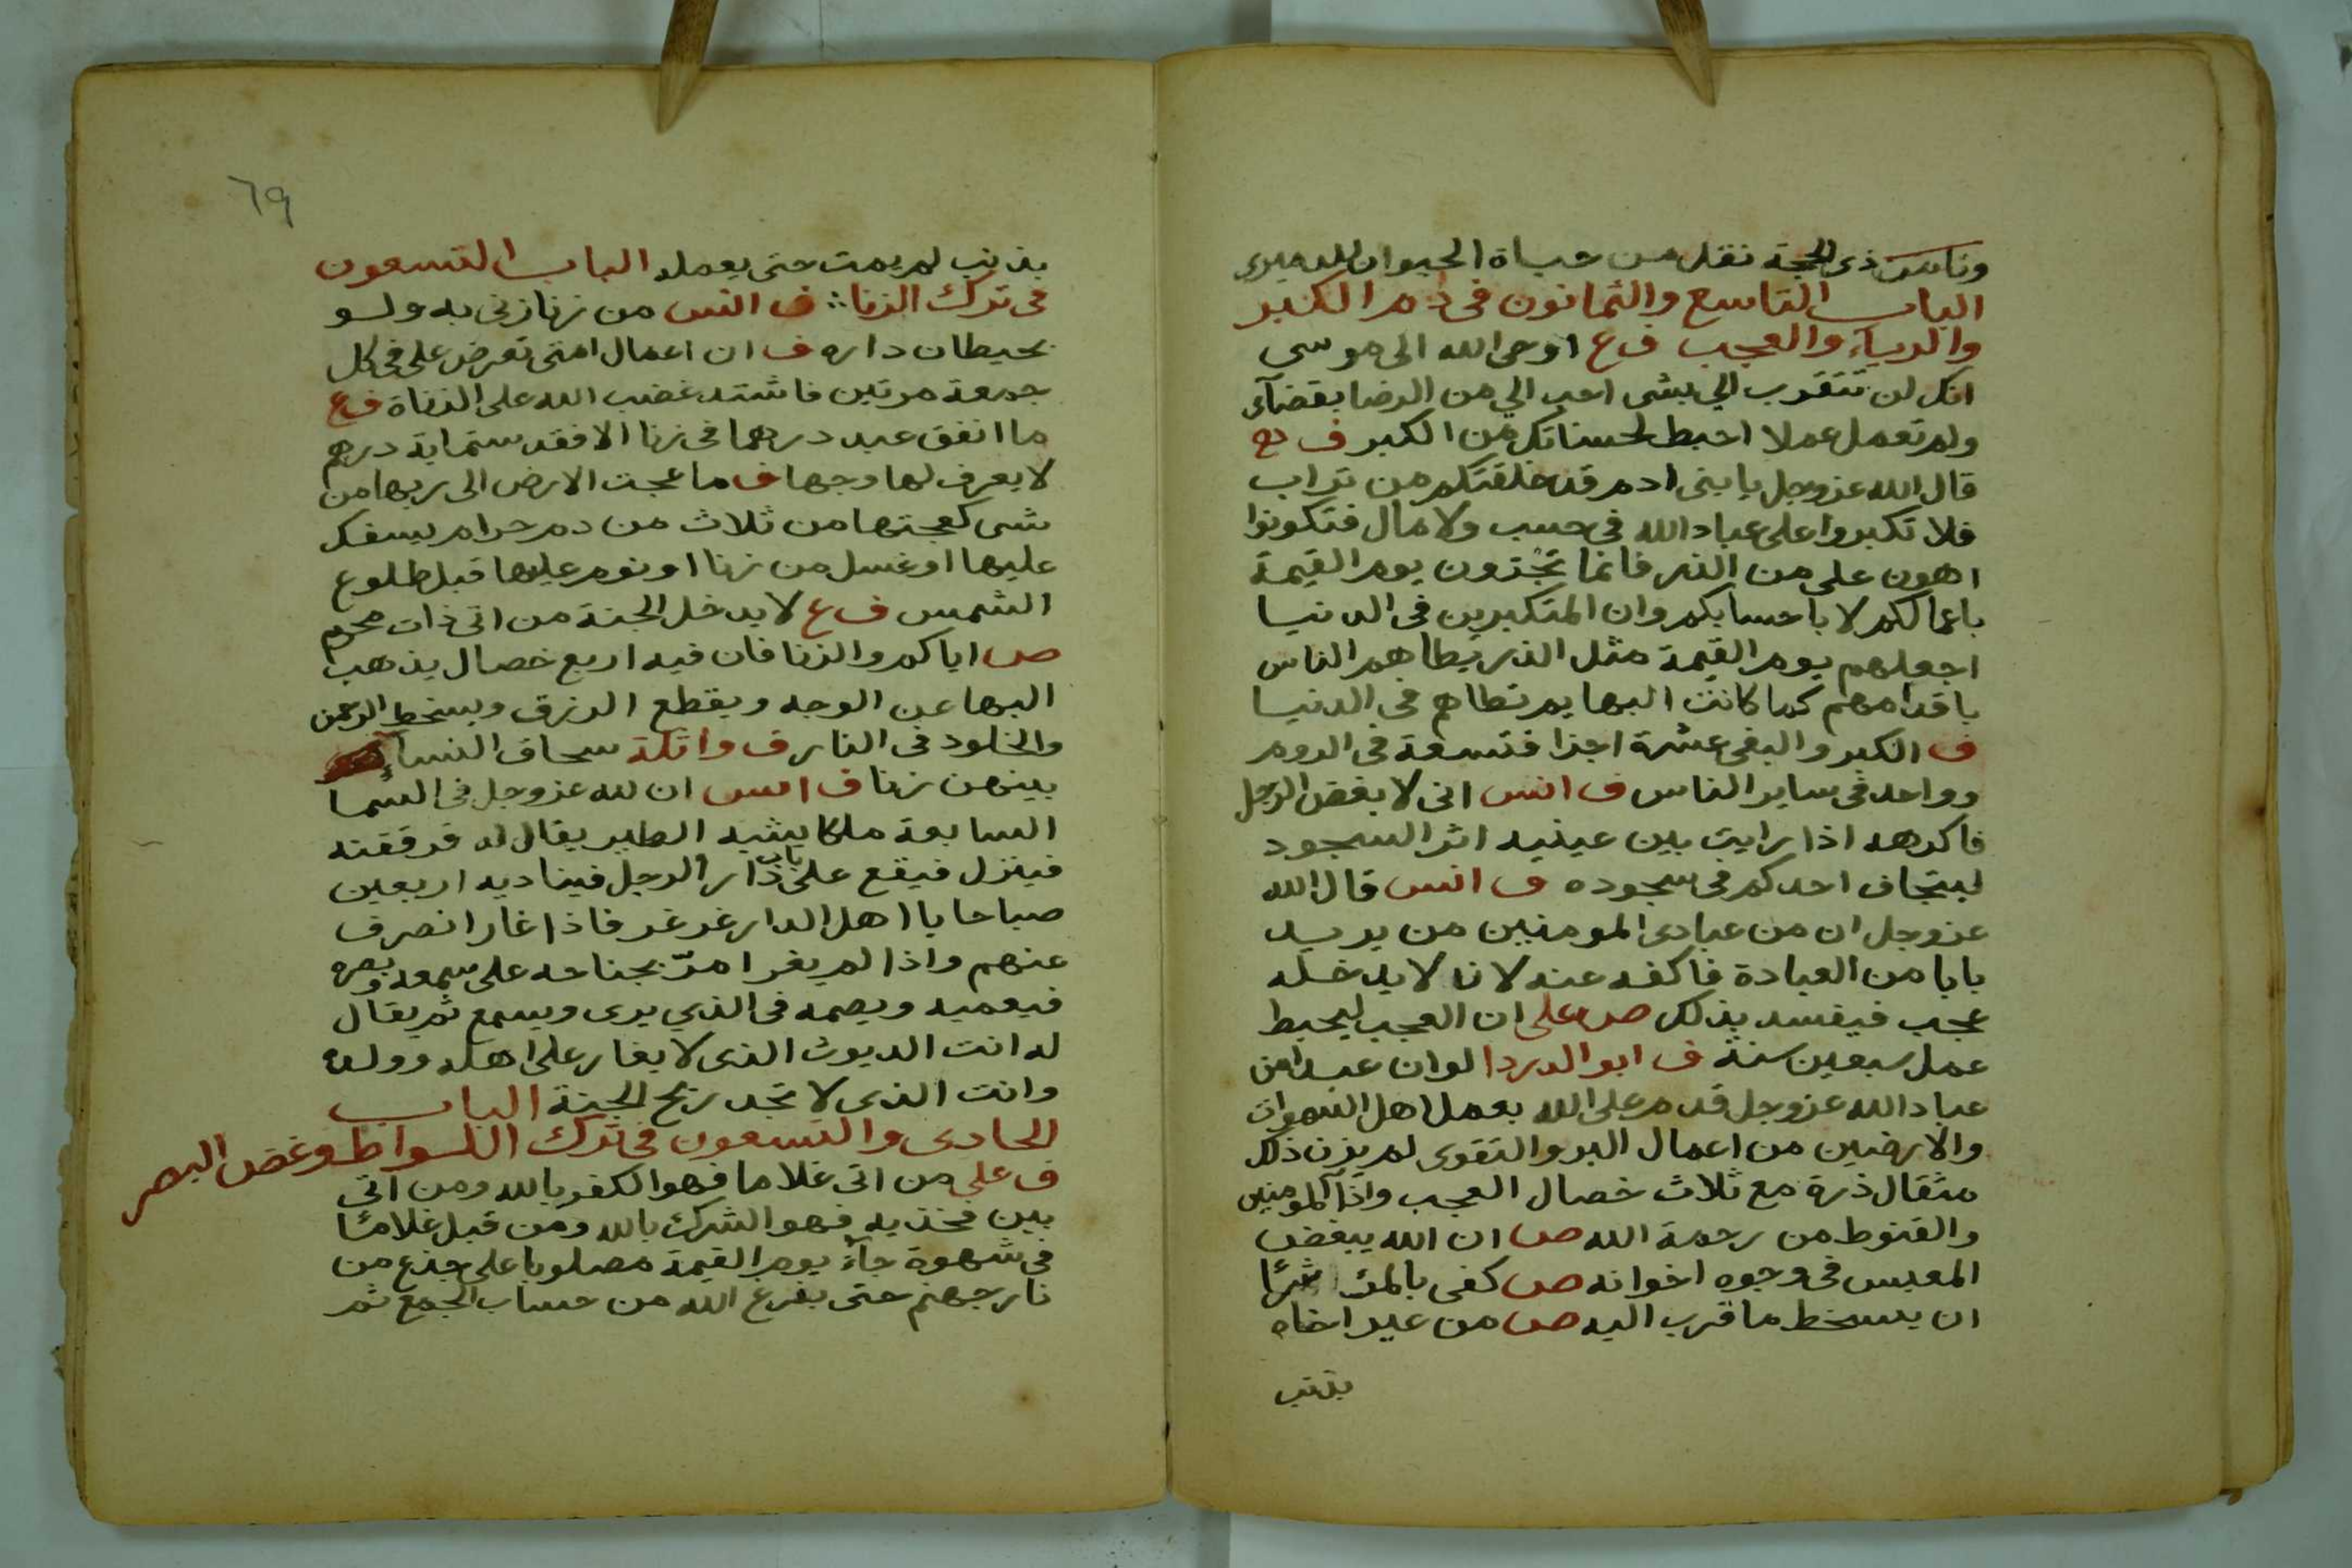 وثامن ذى الحجة نقل من حياة الحيوان للدميرى
الباب التاسع والثمانون فى ذم الكبر
والرياء والعجب ف ع اوحى الله الى موسى
انك لن تتقرب الي بشى احب الي من الرضا بقضآى
ولم تعمل عملا احبط لحسناتك من الكبر ف ع
قال الله عزوجل يا بنى ادم قد خلقتكم من تراب
فلا تكبروا على عباد الله فى حسب ولا مال فتكونوا
اهون على من الذر فانما تجزون يوم القيمة
باعمالكم لا باحسابكم وان المتكبرين فى الدنيا
اجعلهم يوم القيمة مثل الذر يطاهم الناس
باقدامهم كما كانت البهايم تطاهم فى الدنيا
ف الكبر والبغى عشرة اجزا فتسعة فى الروم
وواحد فى ساير الناس ف انس انى لا بغض الرجل
فاكرهه اذا رايت بين عينيه اثر السجود
ليتجاف احدكم فى سجوده ف انس قال الله
عزوجل ان من عبادى المومنين من يريد
بابا من العبادة فاكفه عنه لا نا لا يدخله
عجب فيفسد بذلك ص على ان العجب ليحبط
عمل سبعين سنة ف ابو الدردا لوان عبدا من
عباد الله عزوجل قدم على الله بعمل اهل السموات
والارضين من اعمال البر والتقوى لم يزن ذلك
مثقال ذرة مع ثلاث خصال العجب واذا المومنين
والقنوط من رحمة الله ص ان الله يبغض
المعبس فى وجوه اخوانه ص كفى بالمرء شرًا
ان يسخط ما قرب اليه ص من عير اخاه
بذنب
٦٩
بذنب لم يمت حتى يعمله الباب التسعون
فى ترك الزنا ف انس من زنا زنى به ولو
بحيطان داره ف ان اعمال امتى تعرض على فى كل
جمعة مرتين فاشتد غضب الله على الزناة ف ع
ما انفق عبد درهما فى زنا الا فقد ستماية درهم
لا يعرف لها وجها ف ما عجت الارض الى ربها من
شى كعجتها من ثلاث من دم حرام يسفك
عليها او غسل من زنا او نوم عليها قبل طلوع
الشمس ف ع لا يدخل الجنة من اتى ذات محرم
ص اياكم والزنا فان فيه اربع خصال يذهب
البها عن الوجه ويقطع الرزق ويسخط الرحمن
والخلود فى النار ف واثلة سحاق النسآء
بينهن زنا ف انس ان لله عزوجل فى السما
السابعة ملكا يشبه الطير يقال له قرقفنه
فينزل فيقع على باب دار الرجل فيناديه اربعين
صباحا يا اهل الدار غر غر فاذا غار انصرف
عنهم واذا لم يغر امرّ بجناحه على سمعه وبصره
فيعميه ويصمه فى الذي يرى ويسمع ثم يقال
له انت الديوث الذى لا يغار على اهله وولده
وانت الذى لا تجد ريح الجنة الباب
الحادى والتسعون فى ترك اللواط وغض البصر
ف على من اتى غلاما فهو الكفر بالله ومن اتى
بين فخذيه فهو الشرك بالله ومن قبل غلامًا
فى شهوة جآء يوم القيمة مصلوبا على جذع من
نار جهنم حتى يفرغ الله من حساب الجمع ثم